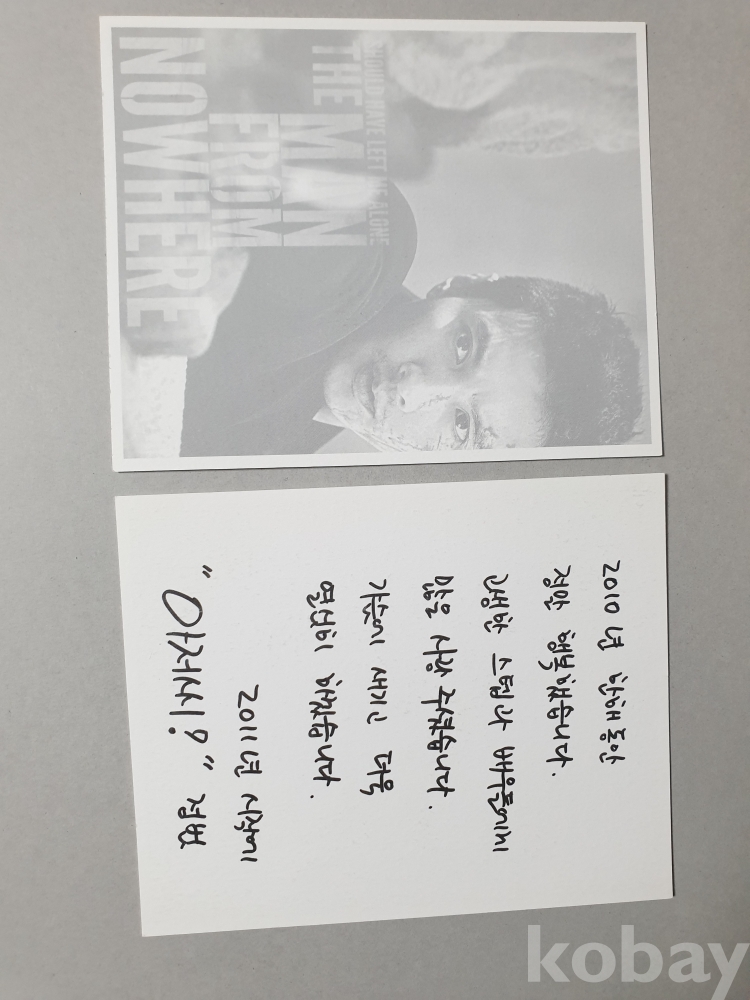 SHOULD HAVE LEFT ME ALONE
THE
MAN
FROM
NOWHERE
2010년 한해동안
정말 행복했습니다.
고생한 스텝과 배우들에게
많은 사랑 주셨습니다.
가슴에 새기고 더욱
열심히 하겠습니다.
2011년 시작에
"아저씨?" 정범
kobay